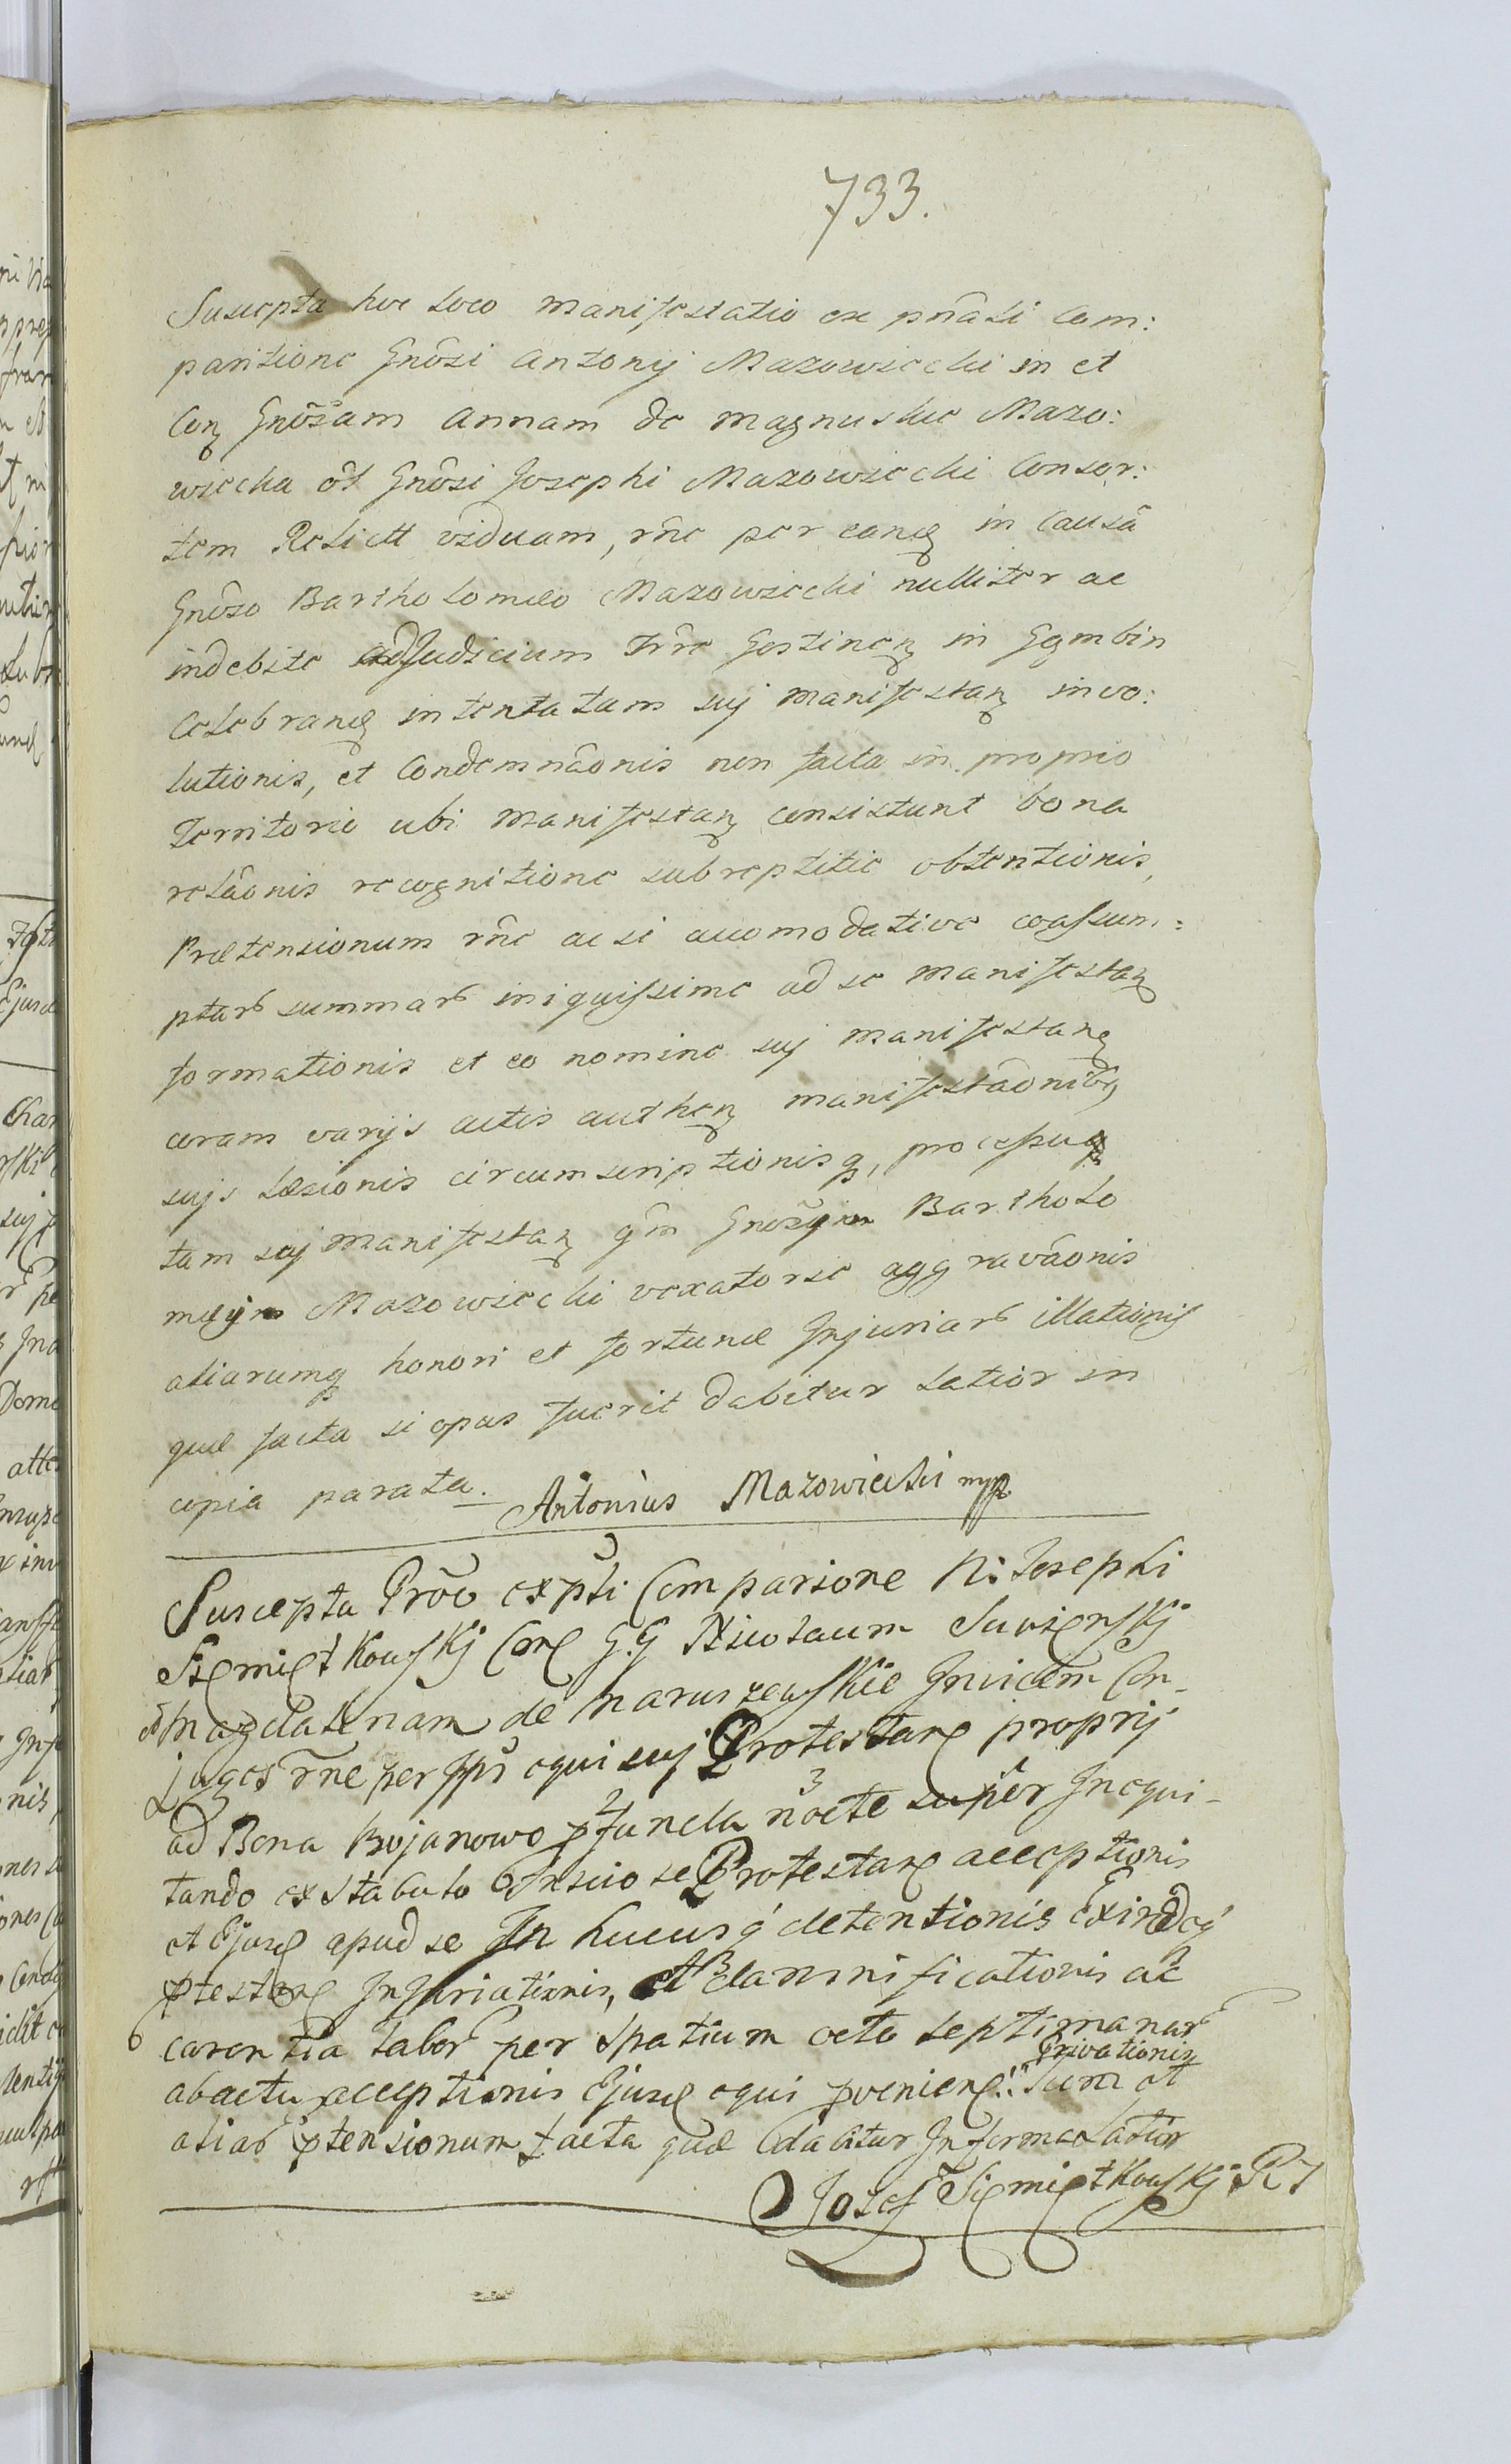 733.
Suscepta hoc loco manifestatio ex pñali Com:
paritione Gnôsi Antonij Mazowiecki in et
Con̨ Gnôsam Annam de Magnuskie Mazo:
wiecka ôl Gnôsi Josephi Mazowiecki Consor:
tem Relictt viduam, rñe per eand in Causâ
Gnôso Bartholomæo Mazowiecki nulliter ac
indebite ad Judicium Trre Gostinen in Gąmbin
Celebrand intentatam suj manifestan invo:
lutionis, et Condemnâonis non facta in proprio
Territorio ubi manifestan consistunt bona
relâonis recognitione subreptitie obtentionis,
Prætensionum rñe ac si accomodative coassum:
ptarb summarb iniquissime ad se manifestan
formationis et eo nomine suj manifestand
coram varijs actis authen manifestâonibq
sujs læsionis circumscriptionisq, processuq
tam suj manifestan qm Gnosym Bartholo
mæym Mazowiecki vexatorie aggravâonis
aliarumq honori et fortunæ Injuriarb illationis
quæ facta si opus fuerit dabitur latior in
copia parata. Antonius Mazowiecki mpp
Suscepta Prôo ex pñti Comparione N: Josephi
Siemiętkowskj Cone G.G Nicolaum Suxienskj
et Magdalenam de Naruszewskie Invicem Con-
juges rñe per Ipś equi suj Protestane proprij
ad Bona Bojanowo pfuncta 2 nocte 3 super Inequi-
tando ex stabulo Inscio se Protestane acceptionis
et Ejusd apud se In hucusq detentionis Exindeq
Ptestane Injuriationis, et damnificationis ac
carentia labor per spatium octo septimanar
Privationis
ab actu acceptionis Ejusd equi pvenien: Tum et
aliab ptensionum facta quæ dabitur In forma Latior
Josef Siemiętkowskj R J